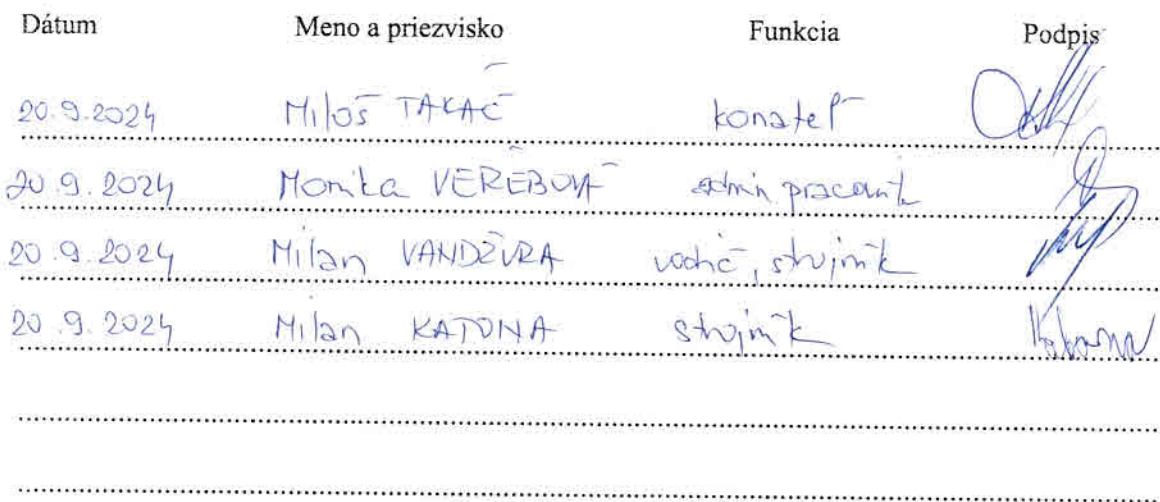 Dátum Meno a priezvisko Funkcia Podpis
20.9.2024 Miloš TAKÁČ konateľ
20.9.2024 Monika VEREBOVÁ admin pracovník
20.9.2024 Milan VANDŽURA vodič, strojník
20.9.2024 Milan KATONA strojník Katona